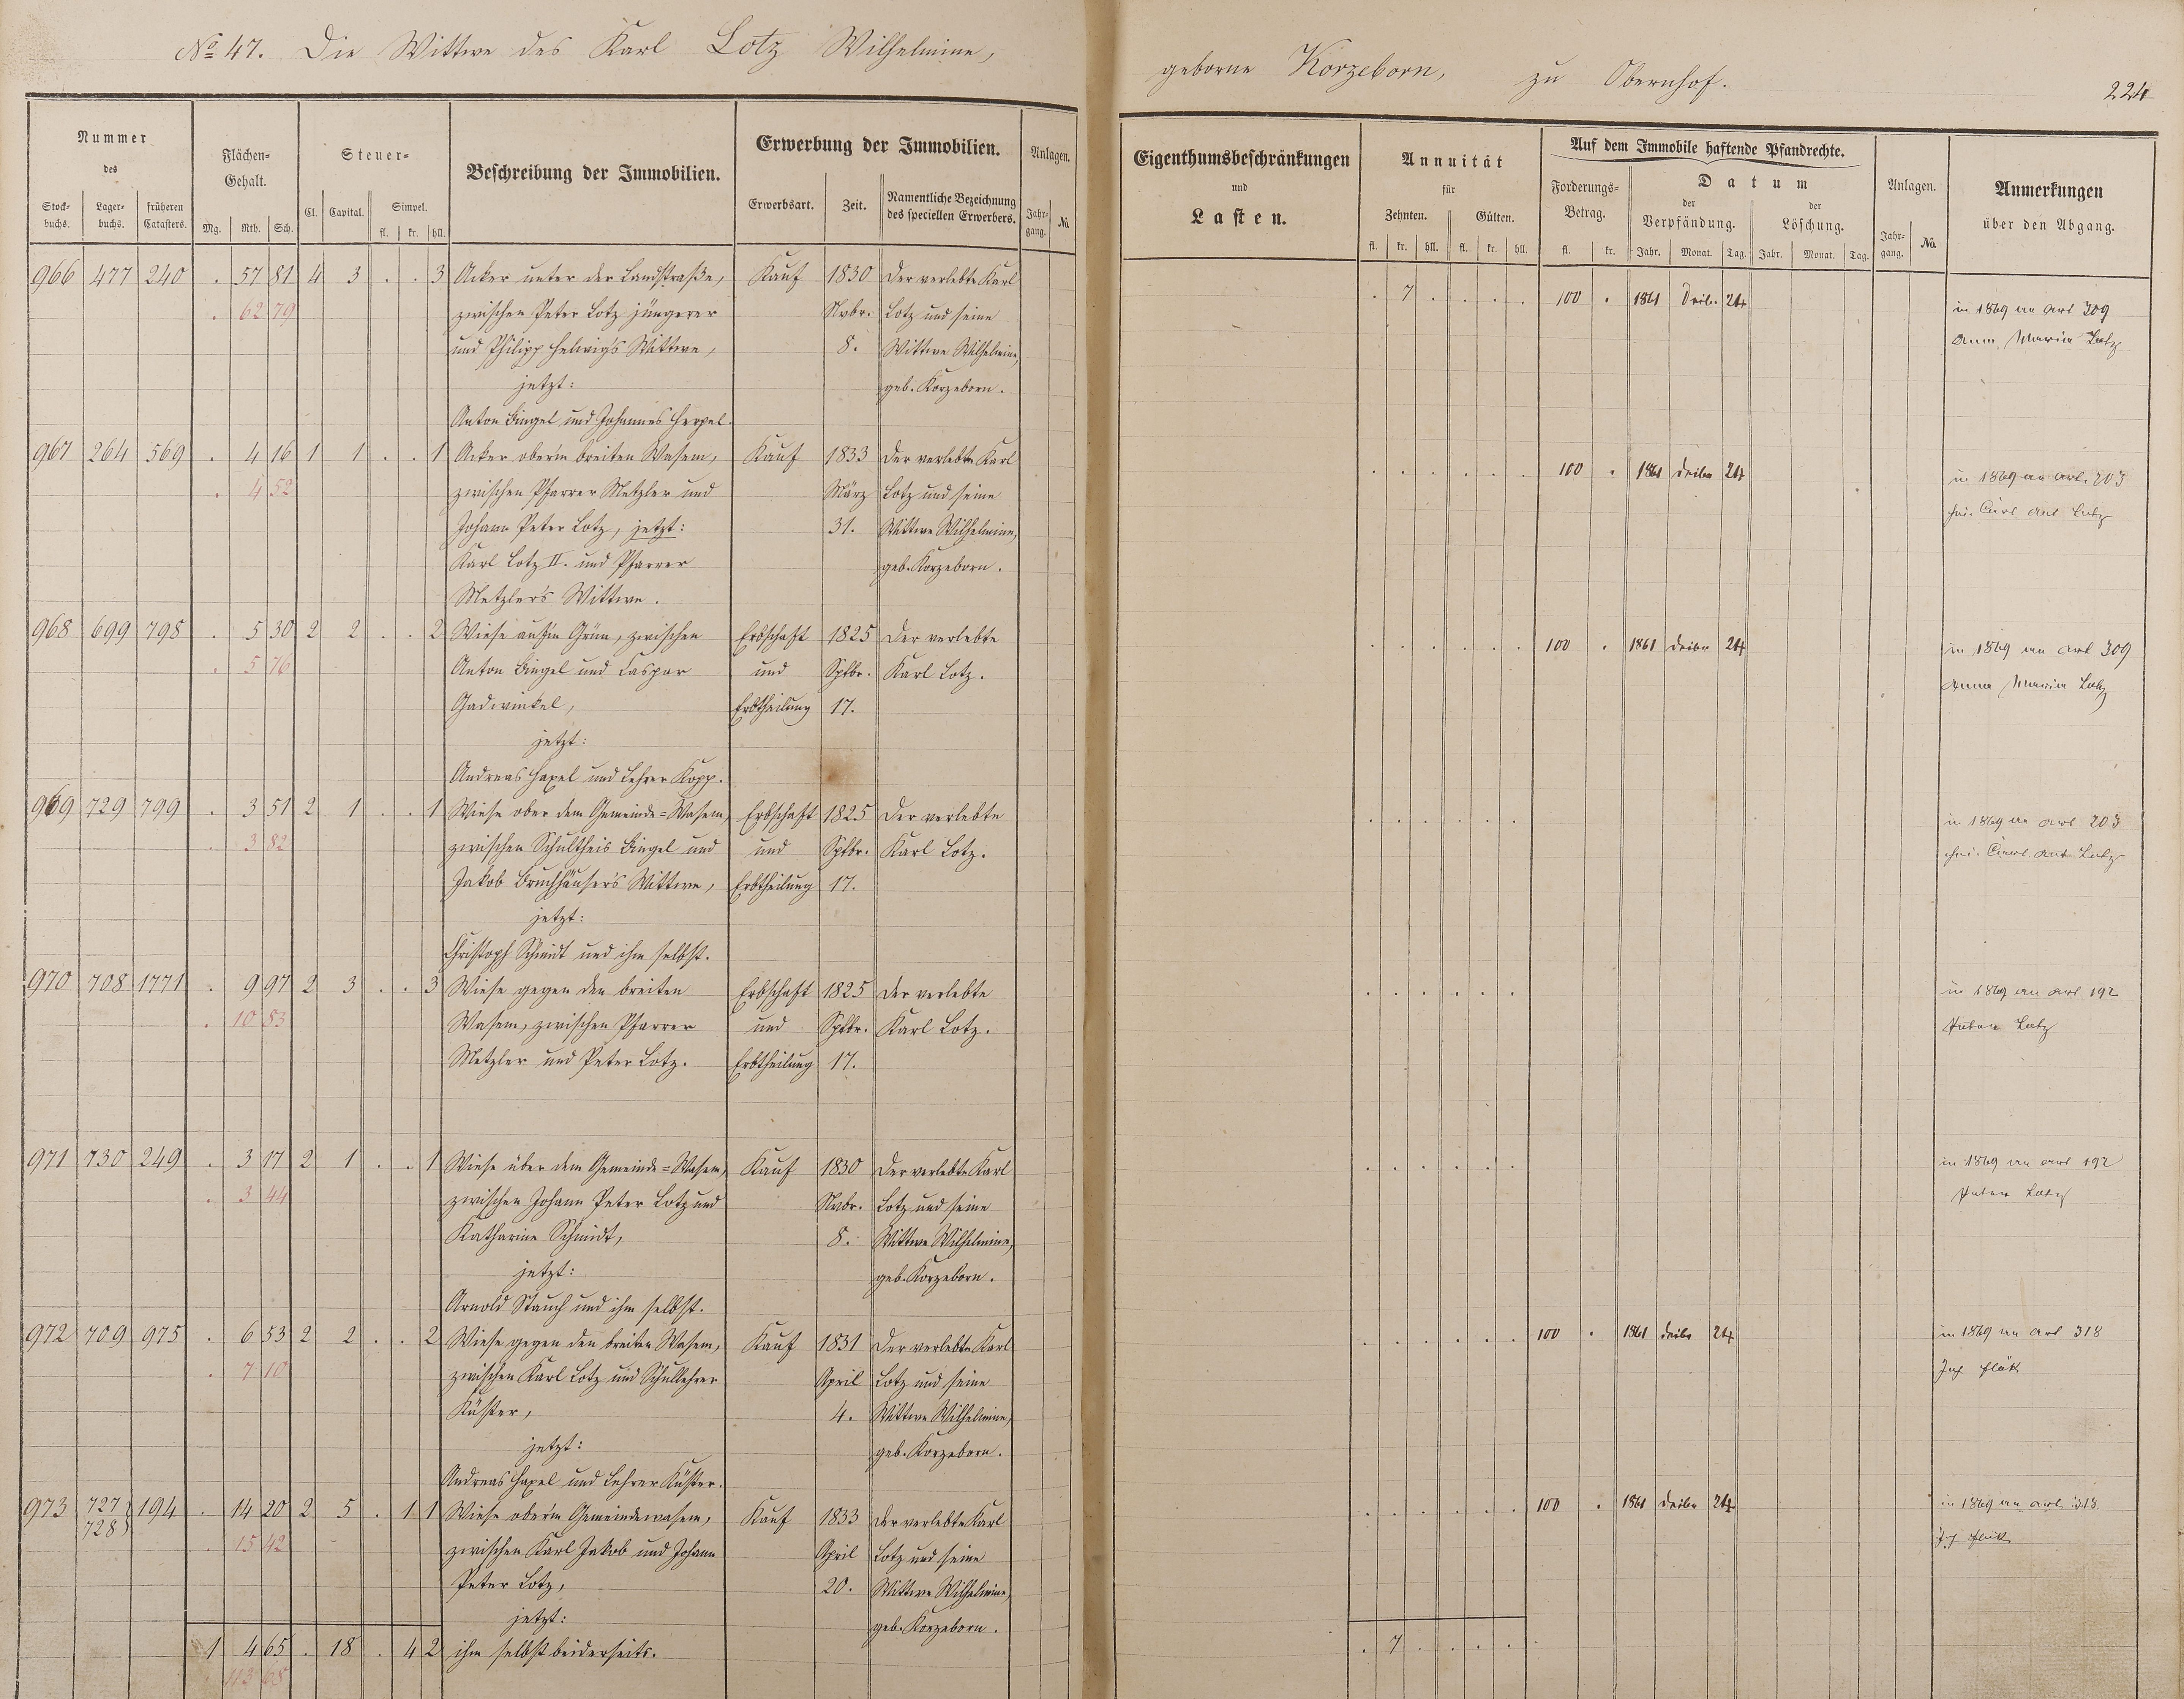 No 47. Die Wittwe des Karl Lotz Wilhelmine, geborne Korzeborn, zu Obernhof.
224
Nummer des
Stock-buchs. Lager-buchs. früheren Catasters.
Flächen-Gehalt.
Mg. Rth. Sch.
Steuer-
Cl. Capital. Simpel.
fl. kr. hll.
Beschreibung der Immobilien.
Erwerbung der Immobilien.
Erwerbsart. Zeit. Namentliche Bezeichnung des speciellen Erwerbers.
Anlagen.
Jahr-gang. No.
Eigenthumsbeschränkungen
und
Lasten.
Annuität
für
Zehnten. Gülten.
fl. kr. hll. fl. kr. hll.
Auf dem Immobile haftende Pfandrechte.
Forderungs-Betrag.
fl. kr.
Datum
der Verpfändung. der Löschung.
Jahr. Monat. Tag. Jahr. Monat. Tag.
Anlagen.
Jahr-gang. No.
Anmerkungen
über den Abgang.
966 477 240 . 57 81 4 3 . . 3 Acker unter der Landstraße, Kauf 1830 Der verlebte Karl
. 62 79 zwischen Peter Lotz jüngerer Nvbr. Lotz und seine
und Philipp Helwig's Wittwe, 8. Wittwe Wilhelmine,
jetzt: geb. Korzeborn.
Anton Bingel und Johannes Herpel.
. 7 . . . . 100 . 1861 24
in 1869 an Art 309
Anna Maria Lotz
967 264 569 . 4 16 1 1 . . 1 Acker ober'm breiten Wasem, Kauf 1833 Der verlebte Karl
. 4 52 zwischen Pfarrer Metzler und März Lotz und seine
Johann Peter Lotz, jetzt: 31. Wittwe Wilhelmine,
Karl Lotz II. und Pfarrer geb. Korzeborn.
Metzler's Wittwe.
. . . . . . 100 . 1861 24
in 1869 an Art. 203
Carl Lotz
968 699 798 . 5 30 2 2 . . 2 Wiese auf'm Grün, zwischen Erbschaft 1825 Der verlebte
. 5 76 Anton Bingel und Caspar und Sptbr. Karl Lotz.
Gadwinkel, Erbtheilung 17.
jetzt:
Andreas Hapel und Lehrer Kopp.
. . . . . . 100 . 1861 24
in 1869 an Art 309
Anna Maria Lotz
969 729 799 . 3 51 2 1 . . 1 Wiese ober dem Gemeinde-Wasem, Erbschaft 1825 Der verlebte
. 3 82 zwischen Schultheis Bingel und und Sptbr. Karl Lotz.
Jakob Bruchhäuser's Wittwe, Erbtheilung 17.
jetzt:
Christoph Schmidt und ihm selbst.
. . . . . .
in 1869 an Art 203
Carl Lotz
970 708 1771 . 9 97 2 3 . . 3 Wiese gegen den breiten Erbschaft 1825 Der verlebte
. 10 83 Wasem, zwischen Pfarrer und Sptbr. Karl Lotz.
Metzler und Peter Lotz. Erbtheilung 17.
. . . . . .
in 1869 an Art 192
Lotz
971 730 249 . 3 17 2 1 . . 1 Wiese über dem Gemeinde-Wasem, Kauf 1830 Der verlebte Karl
. 3 44 zwischen Johann Peter Lotz und Nvbr. Lotz und seine
Katharine Schmidt, 8. Wittwe Wilhelmine,
jetzt: geb. Korzeborn.
Arnold Stauch und ihm selbst.
. . . . . .
in 1869 an Art 192
Lotz
972 709 975 . 6 53 2 2 . . 2 Wiese gegen den breiten Wasem, Kauf 1831 Der verlebte Karl
. 7 10 zwischen Karl Lotz und Schullehrer April Lotz und seine
Küster, 4. Wittwe Wilhelmine,
jetzt: geb. Korzeborn.
Andreas Hapel und Lehrer Küster.
. . . . . . 100 . 1861 24
in 1869 an Art 318
973 727 728 194 . 14 20 2 5 . 1 1 Wiese ober'm Gemeindewasem, Kauf 1833 Der verlebte Karl
. 15 42 zwischen Karl Jakob und Johann April Lotz und seine
Peter Lotz, 20. Wittwe Wilhelmine,
jetzt: geb. Korzeborn.
. . . . . . 100 . 1861 24
in 1869 an Art 318
1 4 65 . 18 . 4 2 ihm selbst beiderseits.
113 68
. 7 . . . .